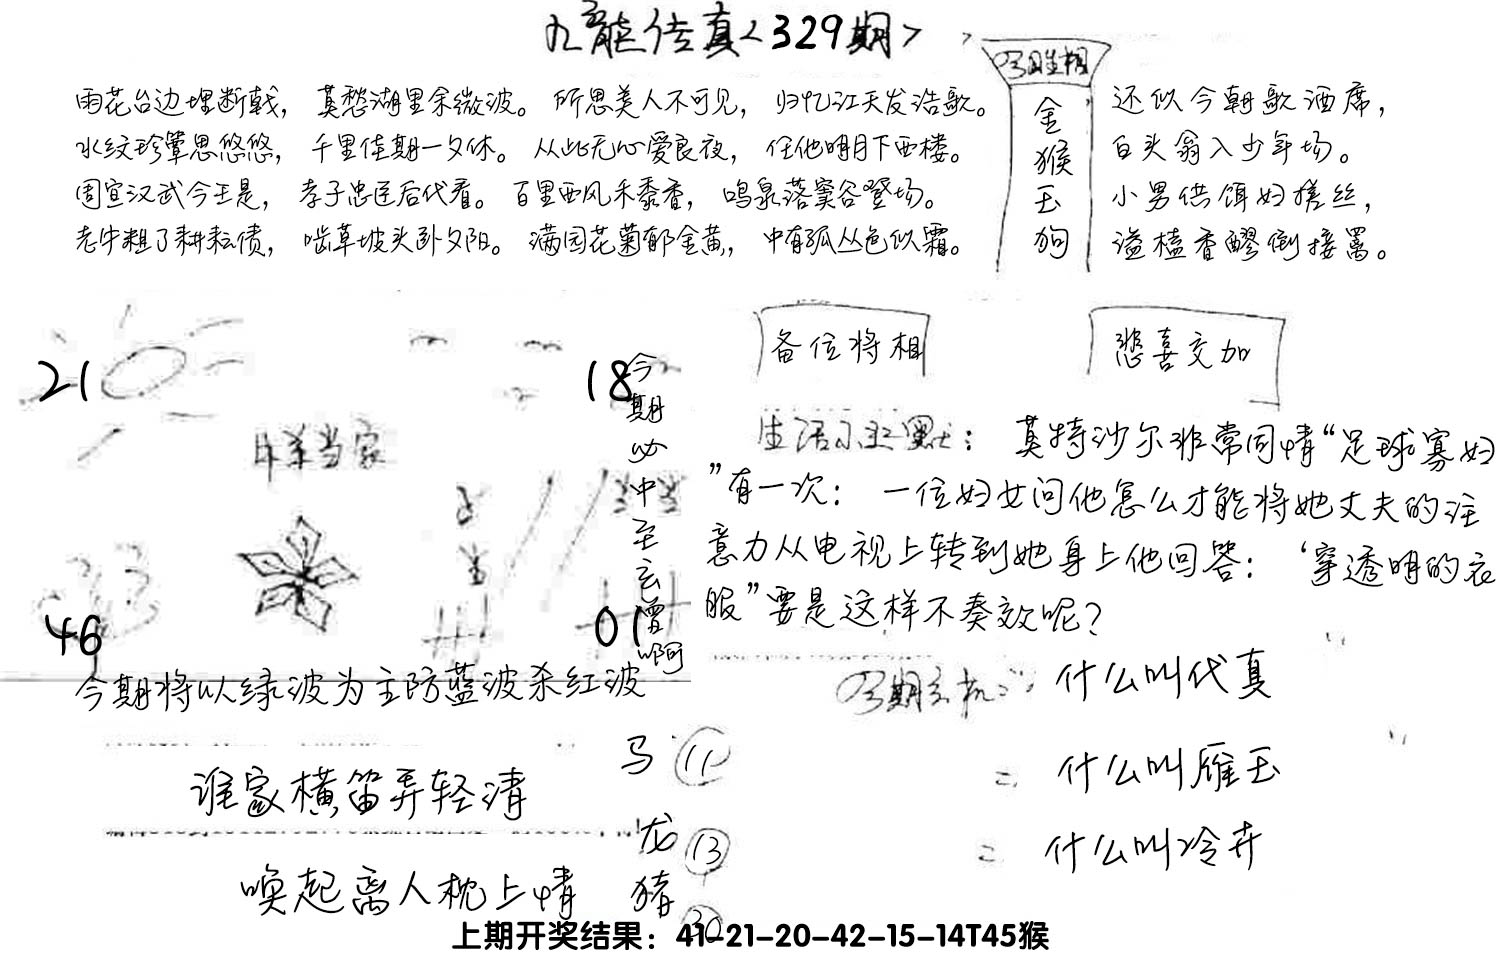 九龙传真<329期>
今期生相
金猴玉狗
雨花台边埋断戟，莫愁湖里余微波。所思美人不可见，归忆江天发浩歌。
水纹珍簟思悠悠，千里佳期一夕休。从此无心爱良夜，任他明月下西楼。
周宣汉武今王是，孝子忠臣后代看。百里西风禾黍香，鸣泉落窦谷登场。
老牛粗了耕耘债，啮草坡头卧夕阳。满园花菊郁金黄，中有孤丛色似霜。
还似今朝歌酒席，
白头翁入少年场。
小男供饵妇搓丝，
溢榼香醪倒接罱。
21
18
46
01
羊当家
今期必中至玄曾啊
今期将以绿波为主防蓝波杀红波
备位将相
悲喜交加
生活小幽默：莫特沙尔非常同情“足球寡妇
”有一次：一位妇女问他怎么才能将她丈夫的注
意力从电视上转到她身上他回答：‘穿透明的衣
服”要是这样不奏效呢？
今期玄机：什么叫代真
什么叫雁玉
什么叫冷卉
谁家横笛弄轻清
唤起离人枕上情
马 11
龙 13
猪 30
上期开奖结果：41-21-20-42-15-14T45猴